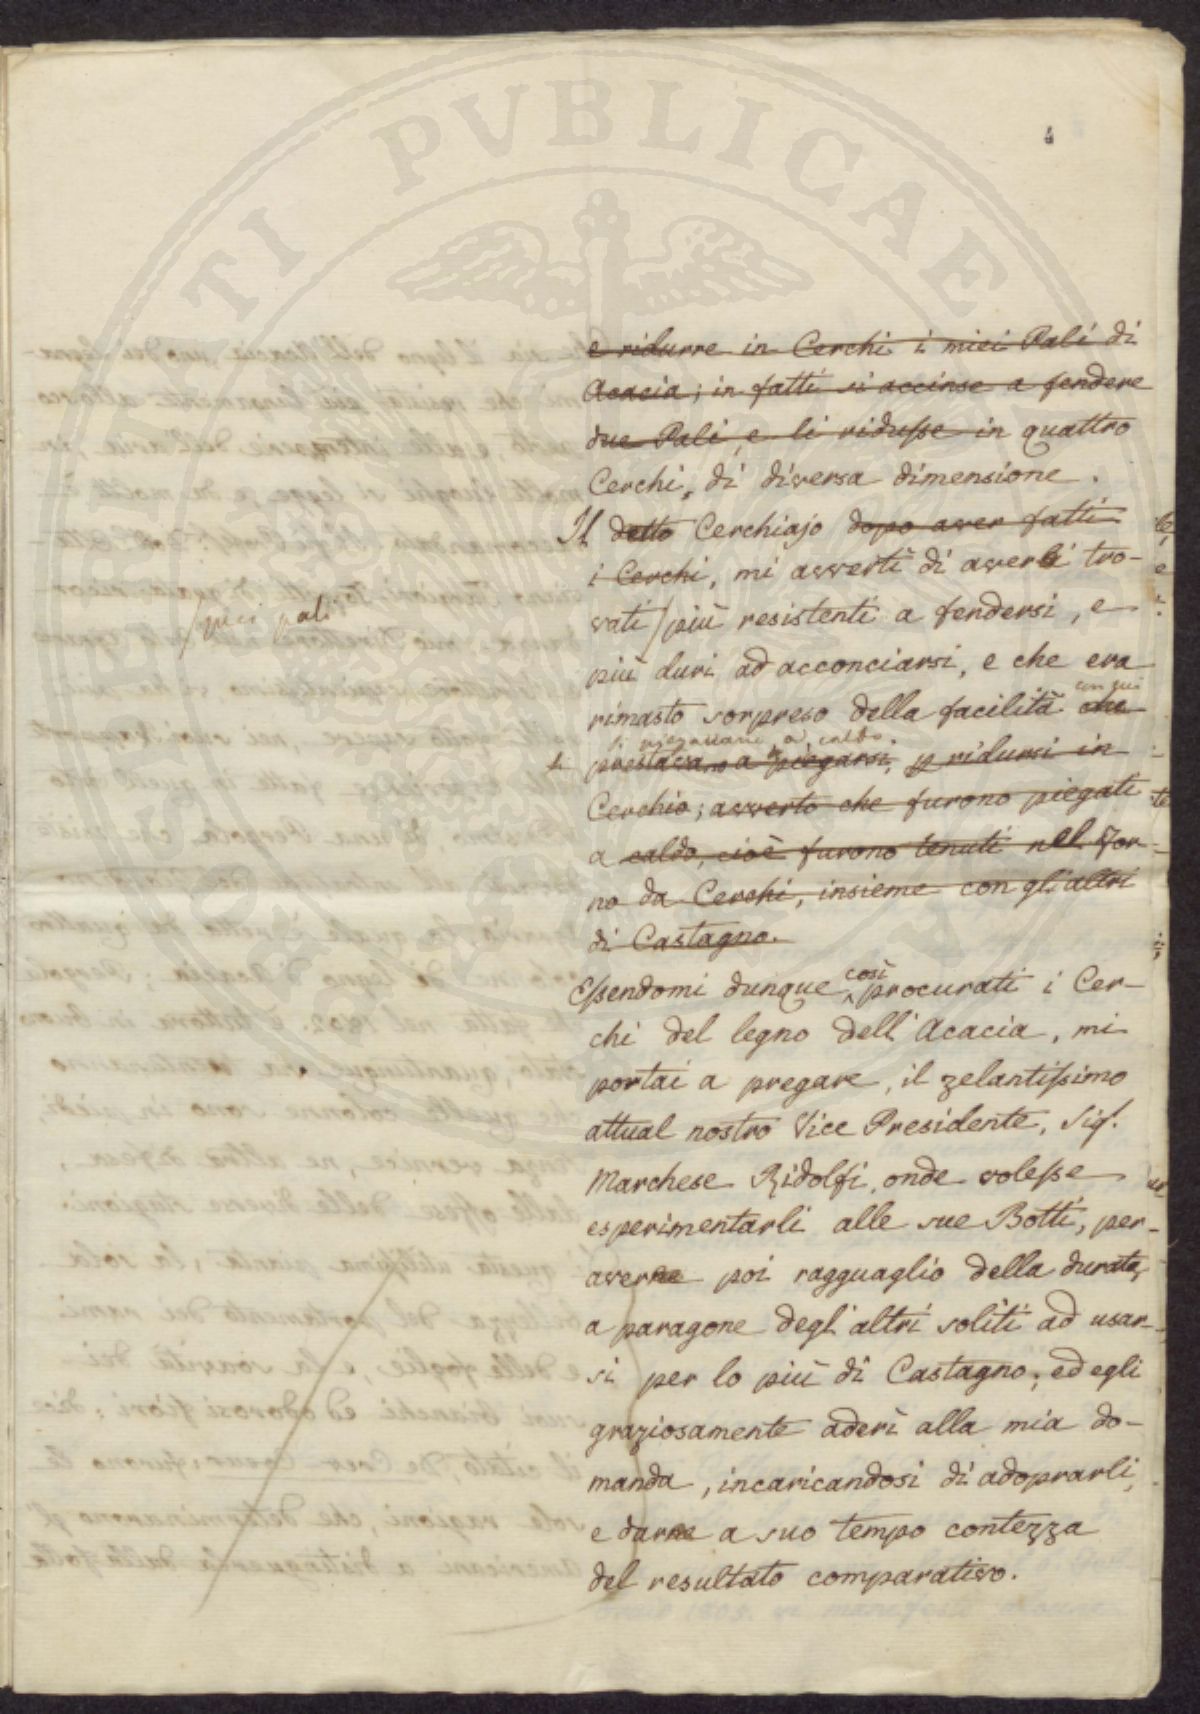 4
e ridurre in Cerchi i miei Pali di
Acacia; in fatti si accinse a fendere
due Pali, e li ridusse in quattro
Cerchi, di diversa dimensione.
Il detto Cerchiajo dopo aver fatti
i Cerchi, mi avvertì di averli tro-
vati / più resistenti a fendersi, e
/ quei pali
più duri ad acconciarsi, e che era
rimasto sorpreso della facilità che
con cui
si piegavano a caldo.
prestavano a piegarsi, p ridursi in
Cerchio; avverto che furono piegati
a caldo, cioè furono tenuti nel For-
no da Cerchi, insieme con gli altri
di Castagno.
Essendomi dunque così procurati i Cer-
chi del legno dell'Acacia, mi
portai a pregare, il zelantissimo
attual nostro Vice Presidente, Sig.
Marchese Ridolfi, onde volesse
esperimentarli alle sue Botti, per
averne poi ragguaglio della durata,
a paragone degl'altri soliti ad usar-
si per lo più di Castagno; ed egli
graziosamente aderì alla mia do-
manda, incaricandosi di adoprarli,
e darne a suo tempo contezza
del resultato comparativo.